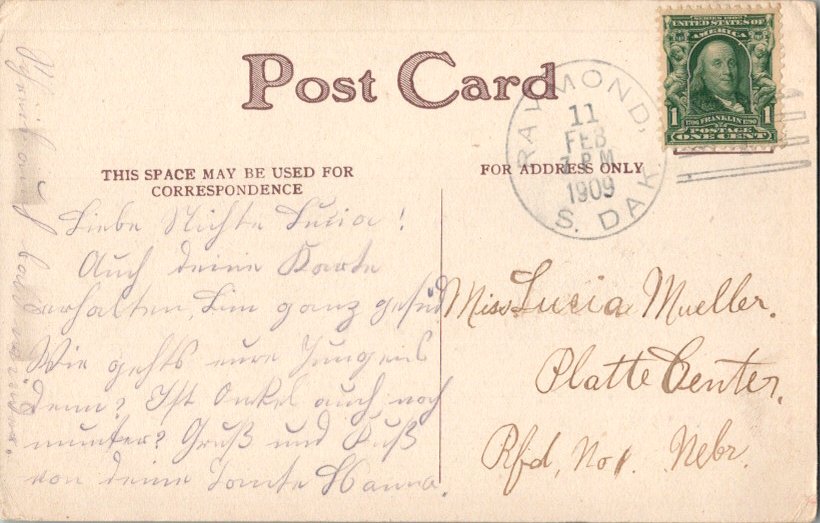 Post Card
THIS SPACE MAY BE USED FOR
CORRESPONDENCE
FOR ADDRESS ONLY
SERIES 1902
UNITED STATES OF
AMERICA
1 1706 FRANKLIN 1790 1
POSTAGE
ONE CENT
RAYMOND,
11
FEB
7 PM
1909
S. DAK.
Liebe Nichte Lucia!
Auch deine Karte
erhalten, bin ganz gesund
Wie gehts eure Jungens
denn? Ist Onkel auch noch
munter? Gruß und Kuß
von deine Tante Hanna.
bald
Miss Lucia Mueller.
Platte Center,
Rfd, No 1. Nebr.